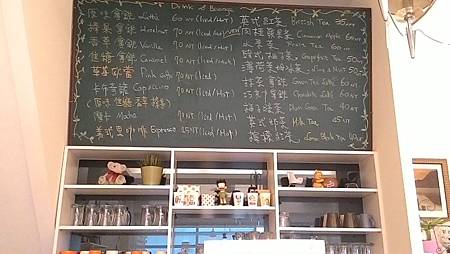 Drink & Beverage
原味拿鐵 Latte 60 NT (Iced/Hot)
榛果拿鐵 Hazelnut 70 NT (Iced/Hot)
香草拿鐵 Vanilla 70 NT (Iced/Hot)
焦糖拿鐵 Caramel 70 NT (Iced/Hot)
Pink Lady 70 NT (Iced/Hot)
卡布奇諾 Capuccino 70 NT (Iced/Hot)
(原味 焦糖 香草 榛果)
摩卡 Mocha 70 NT (Iced/Hot)
美式黑咖啡 Espresso 45 NT (Iced/Hot)
英式紅茶 British Tea 35 NT
肉桂蘋果茶 Cinnamon Apple 60 NT
水果茶 Fruit Tea 60 NT
韓式柚子茶 Grapefruit Tea 50 NT
薄荷萊姆冰茶
抹茶拿鐵 Green Tea Latte 60 NT
巧克力拿鐵 Chocolate Latte 60 NT
梅子綠茶 Plum Green Tea 40 NT
英式奶茶 Milk Tea 45 NT
檸檬紅茶 Lemon Black Tea 40 NT